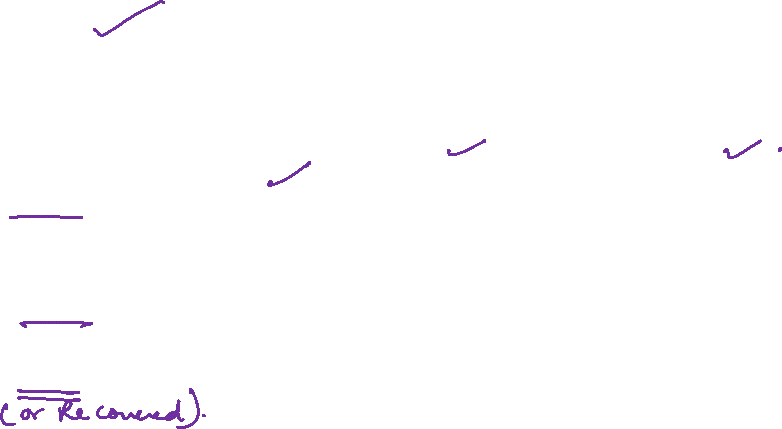 (or Recovered).